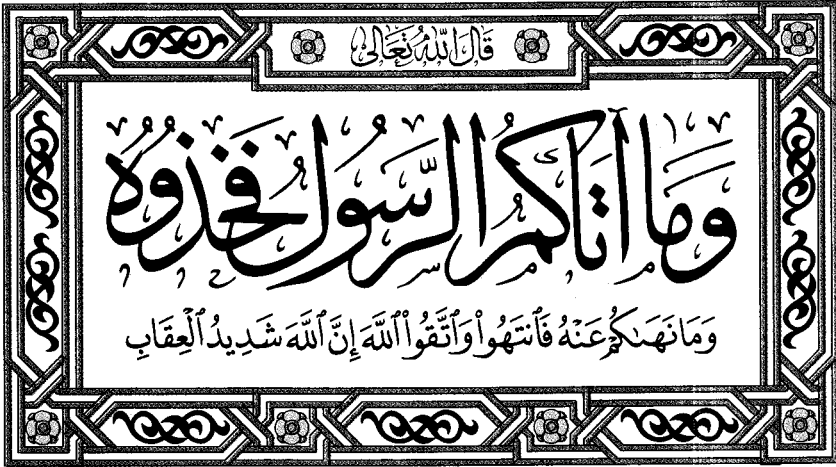 قَالَ اللَّهُ تَعَالَى
وَمَا آتَاكُمُ الرَّسُولُ فَخُذُوهُ
وَمَا نَهَىٰكُمْ عَنْهُ فَٱنتَهُوا۟ وَٱتَّقُوا۟ ٱللَّهَ إِنَّ ٱللَّهَ شَدِيدُ ٱلْعِقَابِ